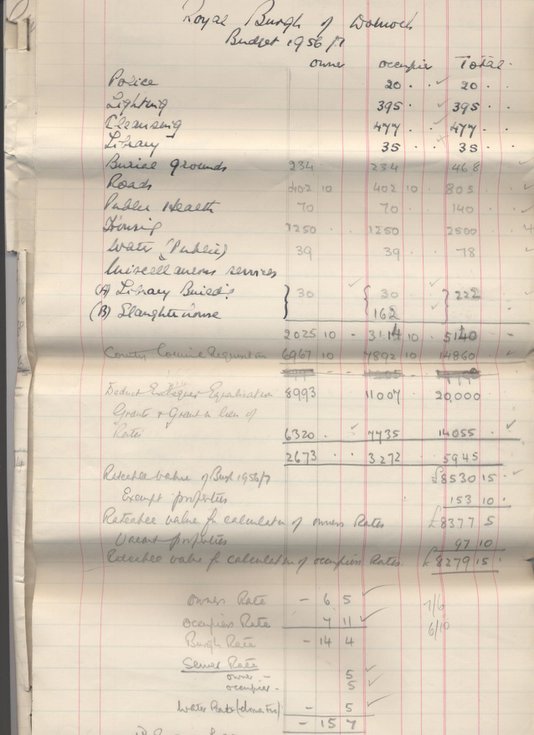 Royal Burgh of Dornoch
Budget 1956/7
owner occupier Total
Police 20 20
Lighting 395 395
Cleansing 477 477
Library 35 35
Burial grounds 234 234 468
Roads 402 10 402 10 805
Public Health 70 70 140
Housing 1250 1250 2500
Water (Public) 39 39 78
Miscellaneous services
(A) Library Build's 30 30 222
(B) Slaughterhouse 162
2025 10 3114 10 5140
County Council Requisition 6967 10 7892 10 14860
Deduct Exchequer Equalisation 8993 11007 20,000
Grant & Grant in lieu of
Rates 6320 7735 14055
2673 3272 5945
Rateable value of Burgh 1956/7 £8530 15
Exempt properties 153 10
Rateable value for calculation of owners Rates £8377 5
Vacant properties 97 10
Rateable value for calculation of occupiers Rates £8279 15
owners Rate - 6 5 7/6
occupiers Rate 7 11 6/10
Burgh Rate - 14 4
Sewer Rate
owner - 5
occupier - 5
Water Rate (domestic) - 5
- 15 7